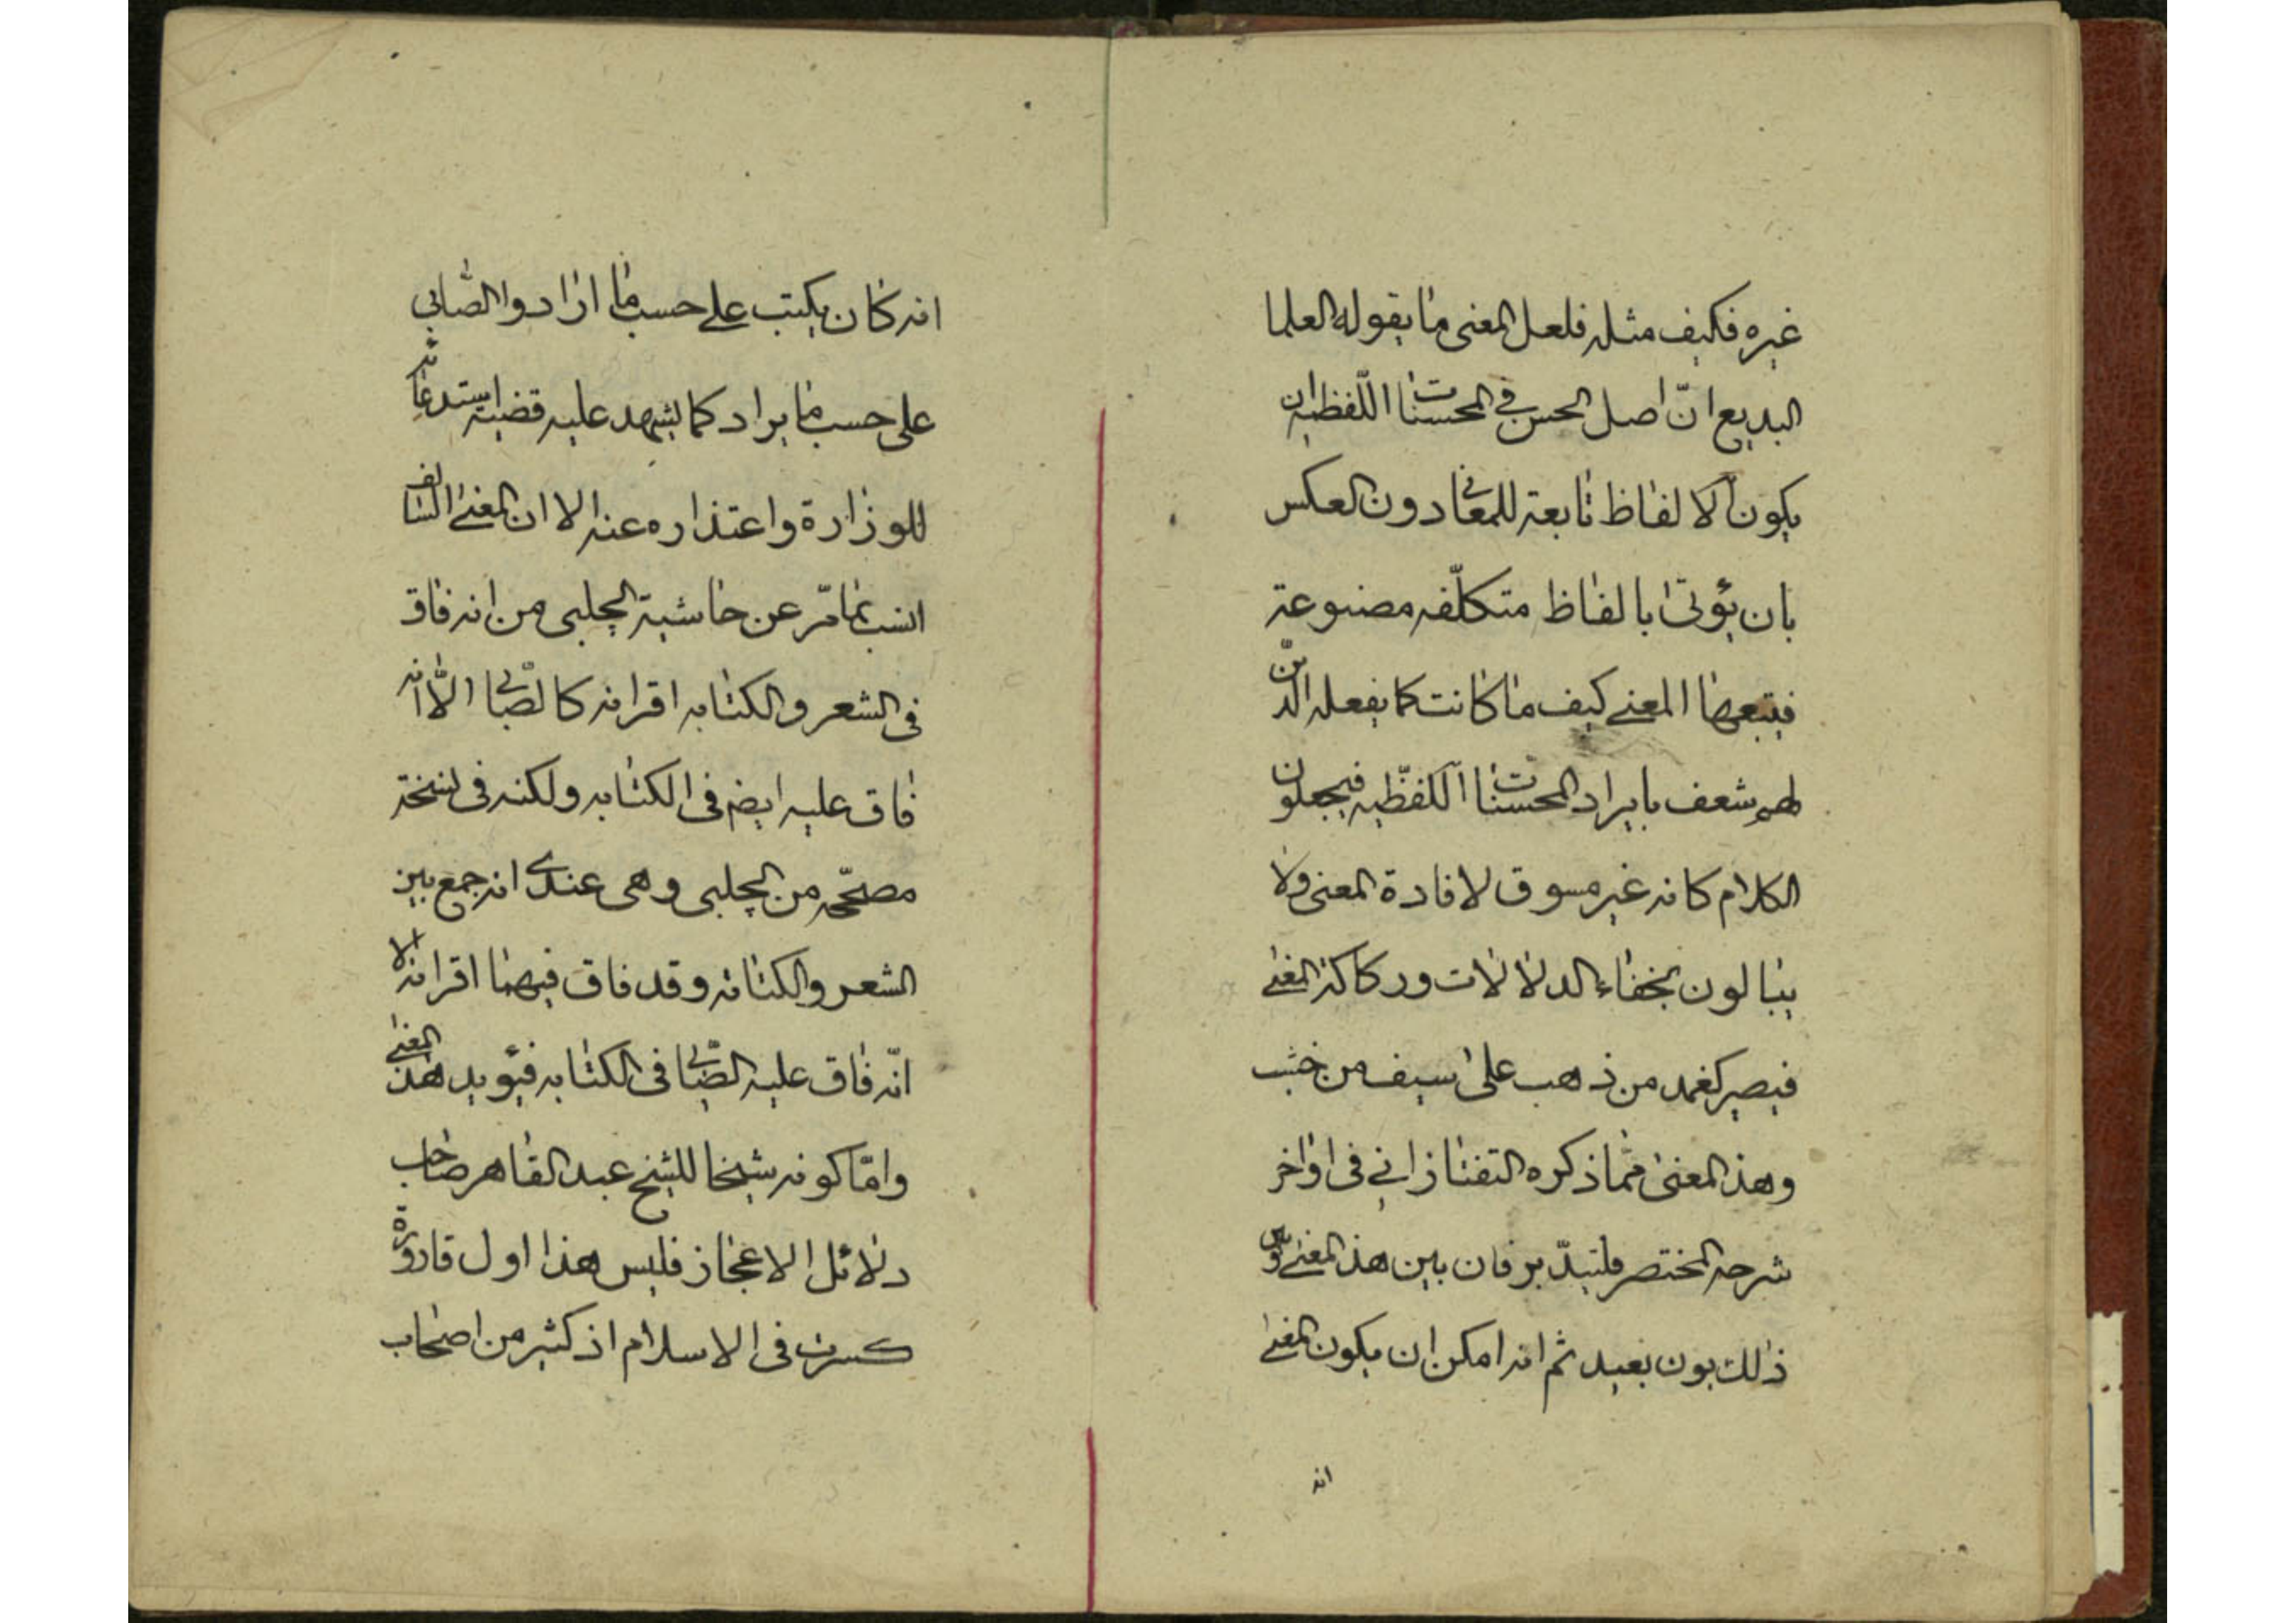 غيره فكيف مثله فلعل المعنى ما يقوله العلما
البديع انّ اصل الحسن في المحسنات اللّفظية ان
يكون الالفاظ تابعة للمعانى دون العكس
بان يؤتى بالفاظ متكلّفه مصنوعة
فيتبعها المعنى كيف ما كانت كما يفعله الذين
لهم شعف بايراد المحسنات اللفظّيه فيجعلون
الكلام كانه غير مسوق لافادة المعنى ولا
يبالون بخفاء الدلالات وركاكة المعنى
فيصير كغمد من ذهب على سيف من خشب
وهذ المعنى ممّا ذكره التفتازاني فى اواخر
شرحه المختصر فلتيدّبر فان بين هذ المعنى وبين
ذلك بون بعيد ثم انه امكن ان يكون المعنى
انه
انه كان يكتب على حسب ما ارادوا الصّابي
على حسب ما يراد كما يشهد عليه قضية استدعائه
للوزارة واعتذاره عنه الا ان المعنى السالف
انسب بما مرّ عن حاشية الچلبى من انه فاق
فى الشعر والكتابه اقرانه كالصّابى الّا انه
فاق عليه ايضم فى الكتابه ولكنه فى نسخة
مصحّحه من الچلبى وهى عندى انه جمع بين
الشعر والكتابه وقد فاق فيهما اقرانه الا
انّه فاق عليه الصّابى فى الكتابه فيؤيد هذ المعنى
وامّا كونه شيخا للشيخ عبد القاهر صاحب
دلائل الاعجاز فليس هذا اول قارورة
كسرت فى الاسلام اذ كثير من اصحاب